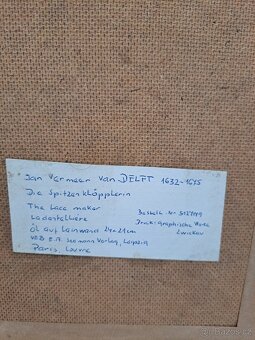 Jan Vermeer van DELFT 1632-1675
Die Spitzenklöpplerin
The Lace maker
Ladentellière
Öl auf Leinwand 24x21cm
VEB E.A. Seemann Verlag, Leipzig
Paris, Louvre
Bestell-Nr.
Druck: Graphische Werke
Zwickau